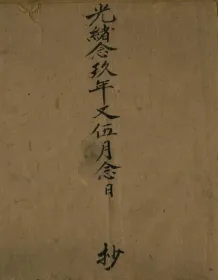 光緒念玖年又伍月念日
抄